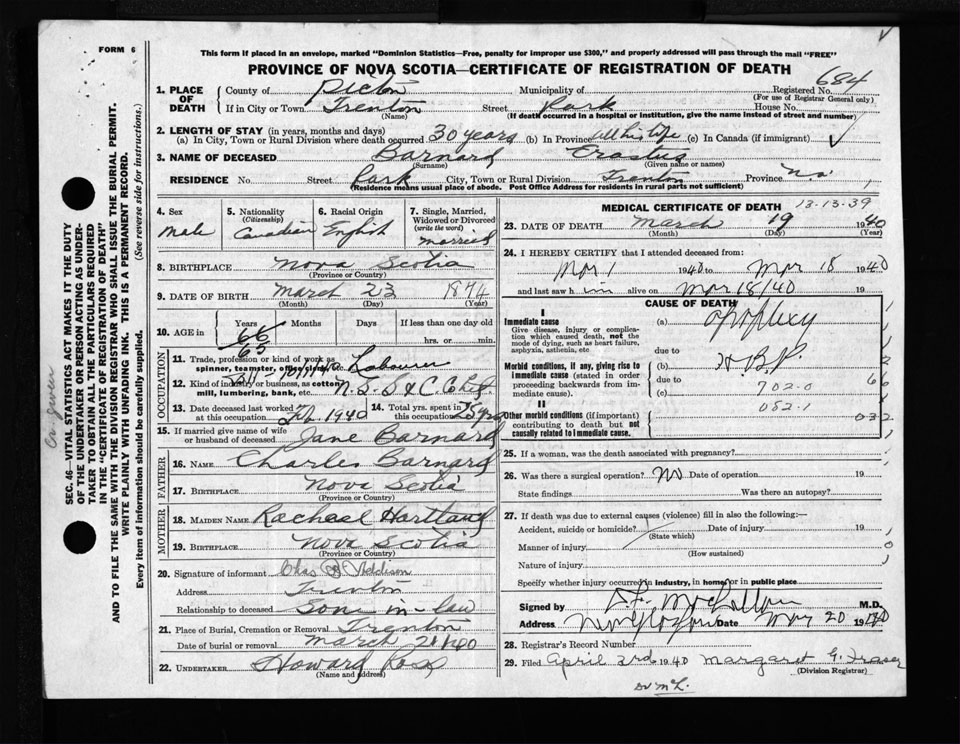 FORM 6
This form if placed in an envelope, marked "Dominion Statistics—Free, penalty for improper use $300," and properly addressed will pass through the mail "FREE"
PROVINCE OF NOVA SCOTIA—CERTIFICATE OF REGISTRATION OF DEATH
684
1. PLACE OF DEATH County of Pictou Municipality of Registered No. (For use of Registrar General only)
If in City or Town Trenton (Name) Street Park House No.
(If death occurred in a hospital or institution, give the name instead of street and number)
2. LENGTH OF STAY (in years, months and days)
(a) In City, Town or Rural Division where death occurred 30 years (b) In Province All his life (c) In Canada (if immigrant)
3. NAME OF DECEASED Barnard (Surname) Erastus (Given name or names)
RESIDENCE No. Street Park City, Town or Rural Division Trenton Province N.S.
(Residence means usual place of abode. Post Office Address for residents in rural parts not sufficient)
4. Sex Male
5. Nationality (Citizenship) Canadian
6. Racial Origin English
7. Single, Married, Widowed or Divorced (write the word) Married
8. BIRTHPLACE Nova Scotia
(Province or County)
9. DATE OF BIRTH March 23 1874
(Month) (Day) (Year)
10. AGE in Years Months Days If less than one day old
66
65 hrs. or min.
OCCUPATION
11. Trade, profession or kind of work as spinner, teamster, office clerk, etc. Labourer
12. Kind of industry or business, as cotton mill, lumbering, bank, etc. N.S.S & C. Co Ltd
13. Date deceased last worked at this occupation Feb 1940
14. Total yrs. spent in this occupation 25 yrs
15. If married give name of wife or husband of deceased Jane Barnard
FATHER
16. NAME Charles Barnard
17. BIRTHPLACE Nova Scotia
(Province or County)
MOTHER
18. MAIDEN NAME Rachael Hartland
19. BIRTHPLACE Nova Scotia
(Province or County)
20. Signature of informant Chas Addison
Address Trenton
Relationship to deceased Sone in-law
21. Place of Burial, Cremation or Removal Trenton
Date of burial or removal March 21 1940
22. UNDERTAKER Howard Ross
(Name and address)
MEDICAL CERTIFICATE OF DEATH 13-13-39
23. DATE OF DEATH March 19 1940
(Month) (Day) (Year)
24. I HEREBY CERTIFY that I attended deceased from:
Mar 1 1940 to Mar 18 1940
and last saw him alive on Mar 18/40 19
CAUSE OF DEATH
I
Immediate cause (a) apoplexy
Give disease, injury or complication which caused death, not the mode of dying, such as heart failure, asphyxia, asthenia, etc
due to
Morbid conditions, if any, giving rise to immediate cause (stated in order proceeding backwards from immediate cause).
(b) H.B.P.
due to 702-0
(c)
082-1
II
Other morbid conditions (if important) contributing to death but not causally related to immediate cause.
032
25. If a woman, was the death associated with pregnancy?
26. Was there a surgical operation? No Date of operation 19
State findings Was there an autopsy?
27. If death was due to external causes (violence) fill in also the following:—
Accident, suicide or homicide? Date of injury 19
(State which)
Manner of injury
(How sustained)
Nature of injury
Specify whether injury occurred in industry, in home or in public place
Signed by M.D.
Address New Glasgow Date Mar 20 1940
28. Registrar's Record Number
29. Filed April 3rd 1940 Margaret G. Fraser
(Division Registrar)
Dr McL.
SEC. 46—VITAL STATISTICS ACT MAKES IT THE DUTY
OF THE UNDERTAKER OR PERSON ACTING AS UNDER-
TAKER TO OBTAIN ALL THE PARTICULARS REQUIRED
IN THE "CERTIFICATE OF REGISTRATION OF DEATH"
AND TO FILE THE SAME WITH THE DIVISION REGISTRAR WHO SHALL ISSUE THE BURIAL PERMIT.
WRITE PLAINLY WITH UNFADING INK. THIS IS A PERMANENT RECORD.
Every item of information should be carefully supplied. (See reverse side for instructions.)